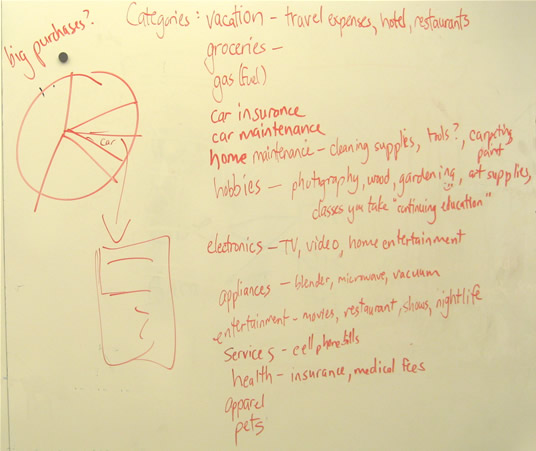 big purchases?
Categories: vacation - travel expenses, hotel, restaurants
groceries -
gas (fuel)
car insurance
car maintenance
home maintenance - cleaning supplies, tools?, carpeting,
paint
hobbies - photography, wood, gardening, art supplies,
classes you take "continuing education"
electronics - TV, video, home entertainment
appliances - blender, microwave, vacuum
entertainment - movies, restaurant, shows, nightlife
services - cell phone bills
health - insurance, medical fees
apparel
pets
car